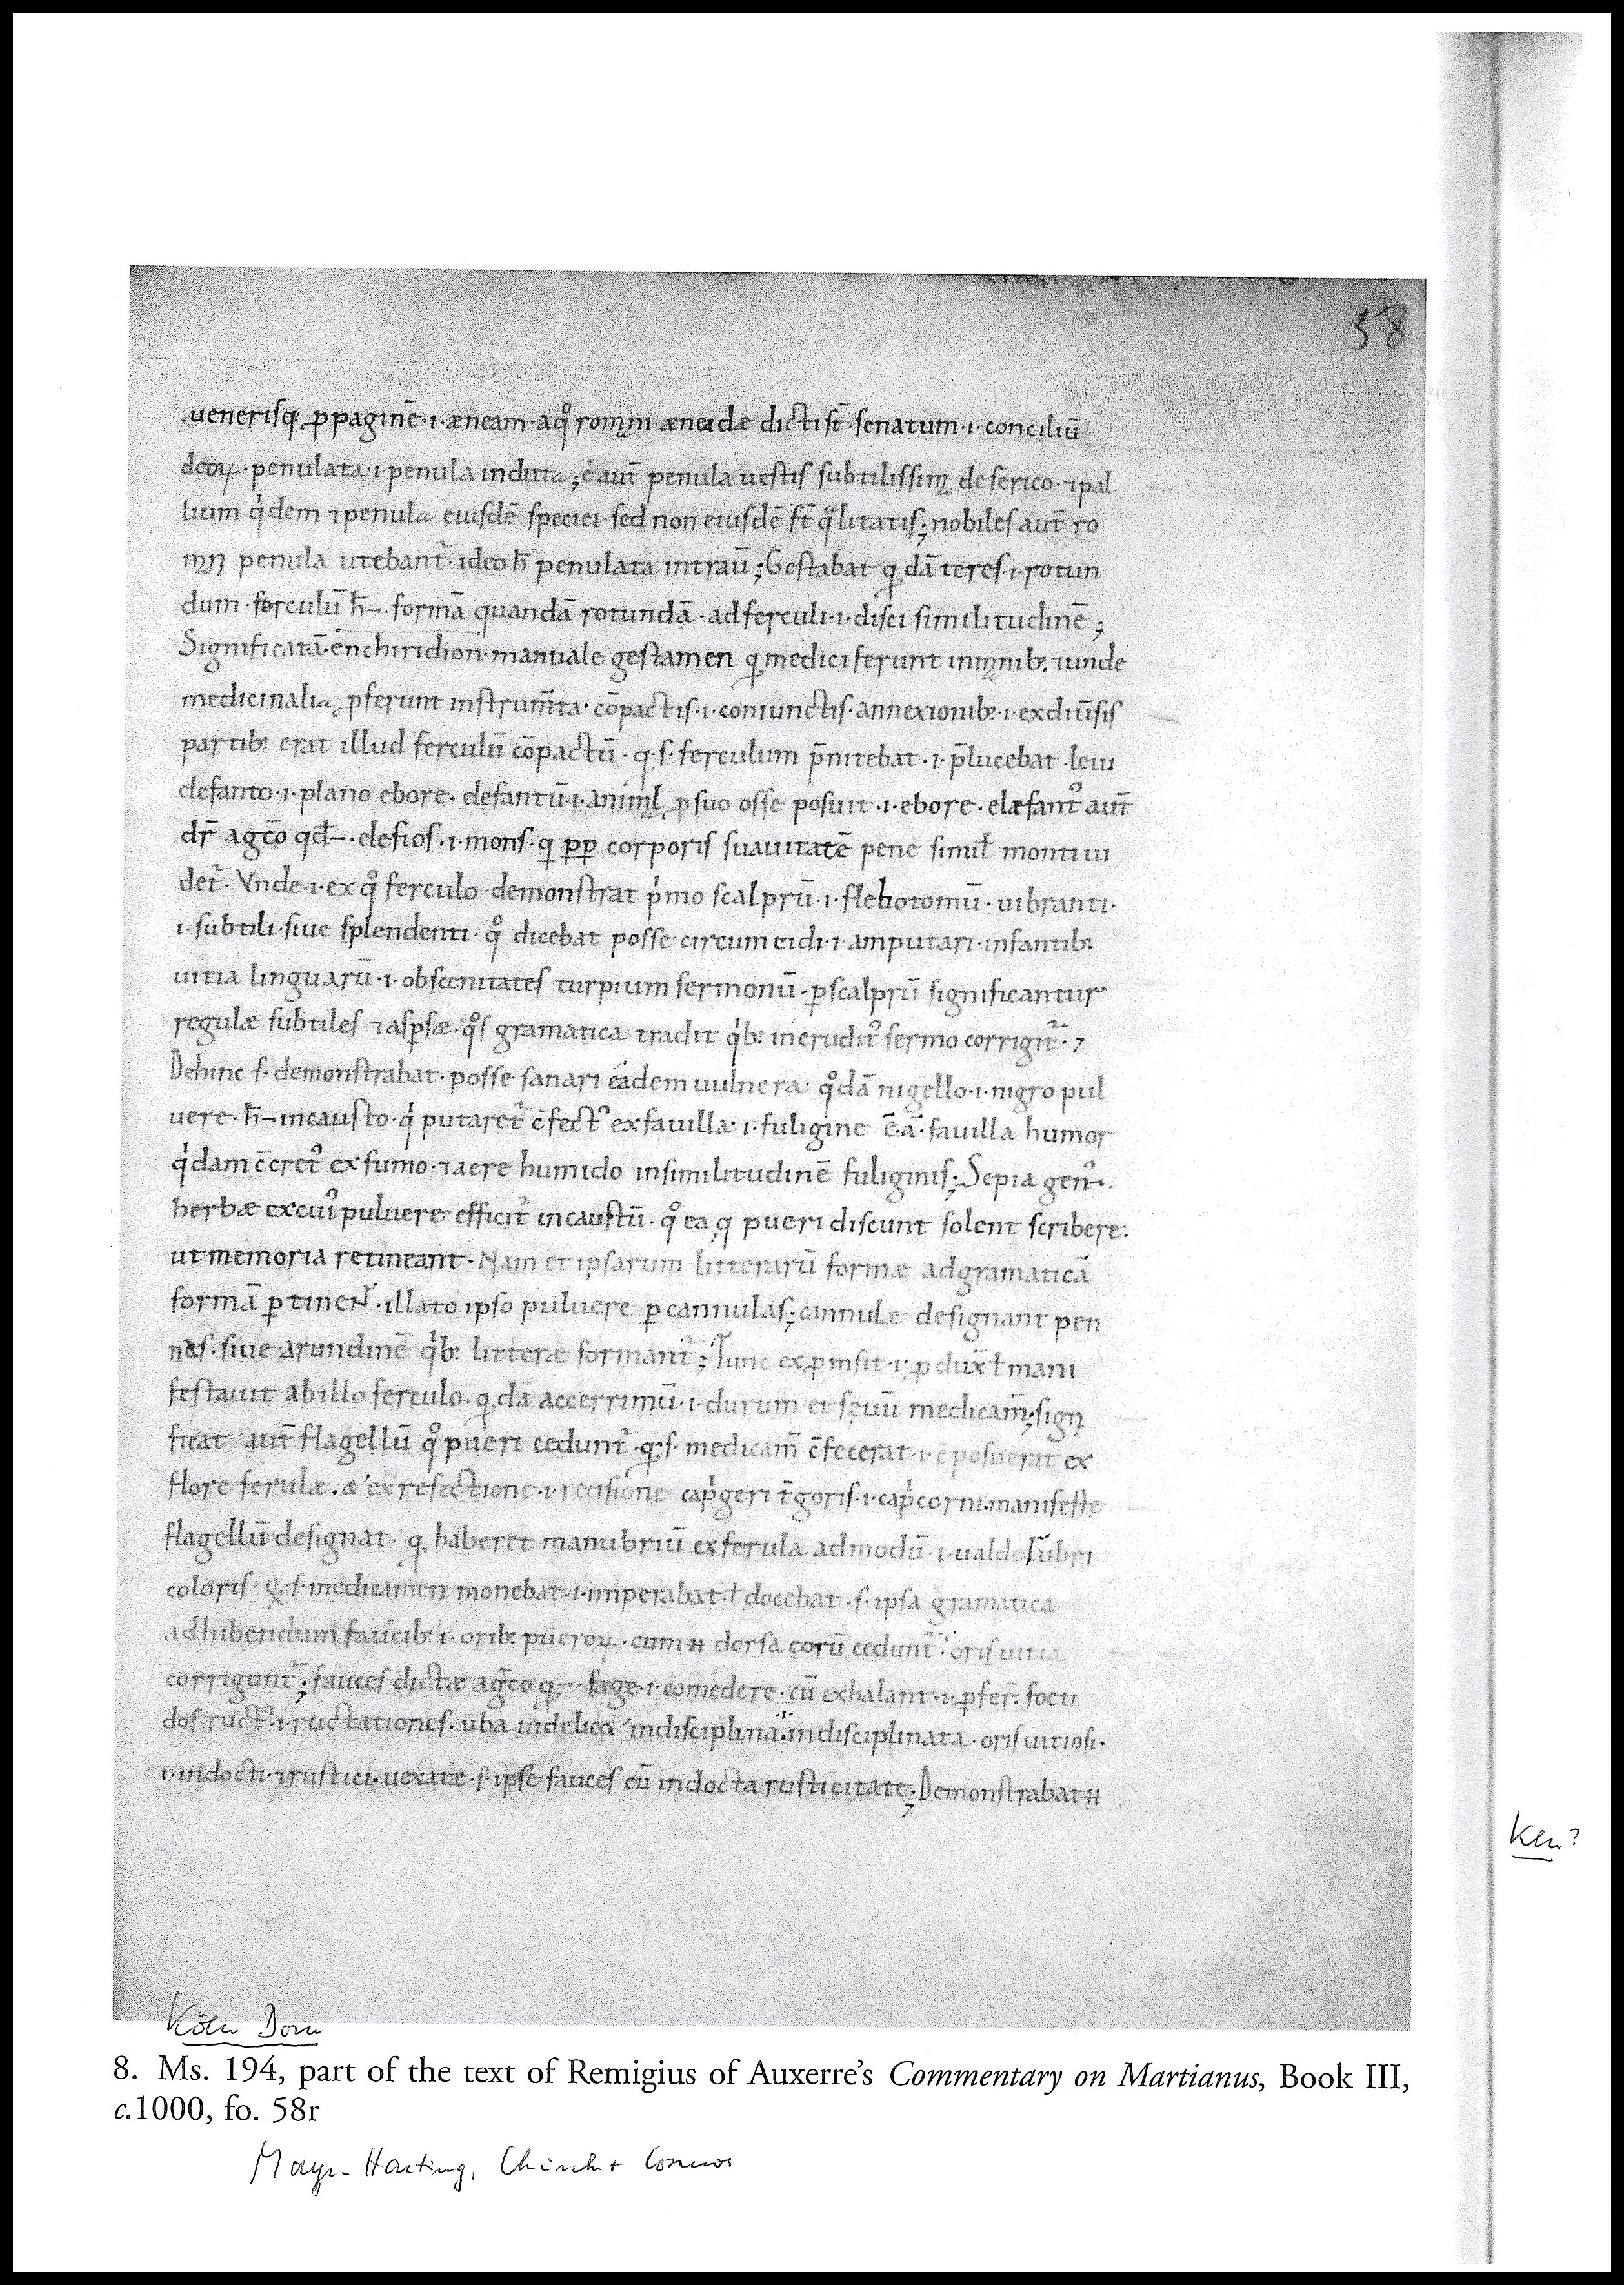 58
uenerisq; ꝓpaginē · i · æneam · a qͦ romꝫni æneadæ dicti st̄ · senatum · i · conciliū
deoꝝ · penulata · i · penula induta ; ē aut̄ penula uestis subtilissimꝫ de serico · ⁊ pal
lium qͥdem ⁊ penula eiusdē speciei · sed non eiusdē st̄ qͣlitatis ; nobiles aut̄ ro
penula utebant᷑ · ideo h̄ penulata intrau̅ ; Gestabat q dā teres · i · rotun
dum · forculū h̄ · formā quandā rotundā · ad ferculi · i · disci similitudinē ;
Significatā · enchiridion · manuale gestamen q medici ferunt in mꝫnib; ⁊ unde
medicinalia ꝓferunt instrum̄ta · cōpactis · i · coniunctis · annexionib; · i · ex diūsis
partib; erat illud ferculū cōpactū · q · s · ferculum p̄nitebat · i · p̄lucebat · leui
elefanto · i · plano ebore · elefantū · i · animꝫl ꝓ suo osse posuit · i · ebore · elæfantꝰ aut̄
dr̄ a gc̄o qd̄ · elefios · i · mons · q ꝓꝓ corporis suauitatē pene simil̵ monti ui
det᷑ · Vnde · i · ex qͦ ferculo demonstrat pͥmo scalprū · i · flebotomū · uibranti ·
i · subtili · siue splendenti · qͦ dicebat posse circumcidi · i · amputari · infantib;
uitia linguarū · i · obscenitates turpium sermonū · ꝑ scalprū significantur
regulæ subtiles ⁊ asꝑsæ · qͦs gramatica tradit qͥb; ineruditꝰ sermo corrigit᷑ · 7
Dehinc s · demonstrabat · posse sanari eadem uulnera · qͦdā nigello · i · nigro pul
uere · h̄ incausto · qͥ putaret᷑ c̄fectꝰ ex fauilla · i · fuligine · ē · a · fauilla humor
qͥdam c̄cretꝰ ex fumo · ⁊ aere humido in similitudinē fuliginis ; Sepia genꝰ ·
herbæ ex cuiꝰ puluere efficit᷑ incaustū · qͦ ea q pueri discunt solent scribere ·
ut memoria retineant · Nam et ipsarum litterarū formæ ad gramaticā
formā ꝑtinent᷑ · illato ipso puluere ꝑ cannulas ; cannulæ designant pen
nas · siue arundinē qͥb; litteræ formant᷑ ; Tunc exꝓmsit · i · ꝓdux̄ ł mani
festauit ab illo ferculo · q dā accerrimū · i · durum et seuū medicam̄ ; signꝫ
ficat aut̄ flagellū qͦ pueri cedunt᷑ · q · s · medicam̄ c̄fecerat · i · c̄posuerat ex
flore ferulæ · & ex resectione · i · recisione capͥgeri t̄goris · i · capͥcorni · manifeste
flagellū designat · q haberet manubriū ex ferula ad modū · i · ualde
coloris · q · s · medicamen monebat · i · imperabat · ł docebat · s · ipsa gramatica
adhibendum faucib; i · orib; pueroꝝ · cum ħ dorsa eorū cedunt᷑ · oris uitia
corrigunt᷑ ; fauces dictæ a gc̄o q fage · i · comedere · cū exhalant · i · ꝓfer̄ · foeti
dos ruct · i · ructationes · ūba indisciplinā · indisciplinata · oris uitiosi ·
i · indocti · ⁊ rustici · uexatæ · s · ipse fauces cū indocta rusticitate ; Demonstrabat ħ
Ken?
Köln Dom
8. Ms. 194, part of the text of Remigius of Auxerre's Commentary on Martianus, Book III,
c.1000, fo. 58r
Mayr-Harting, Church + Cosmos